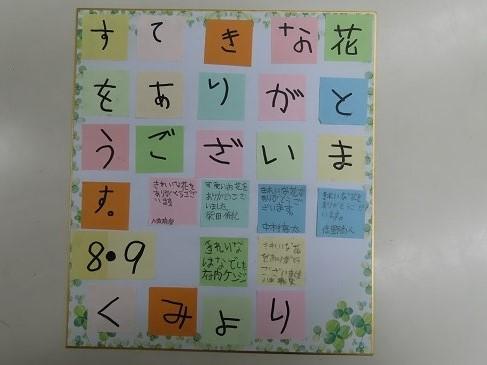 すてきな花
をありがと
うございま
す。
きれいな花を
ありがとうござ
います
すてきなお花を
ありがとうござ
いました。
きれいな花を
ありがとうご
ざいます。
きれいな花を
ありがとうござ
います。
8•9
きれいな
はなでした
きれいな花
をありがとう
ございました
くみより